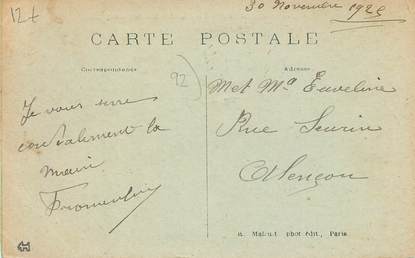 12t
30 Novembre 192
CARTE POSTALE
Correspondance
Adresse
92
Je vous serre
cordialement la
main
M et Ma Euveline
Rue
Alençon
phot édit., Paris.